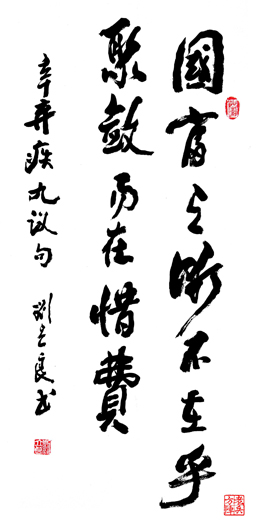 國富之術不在乎
聚斂而在惜費
辛弃疾九议句 劉良书